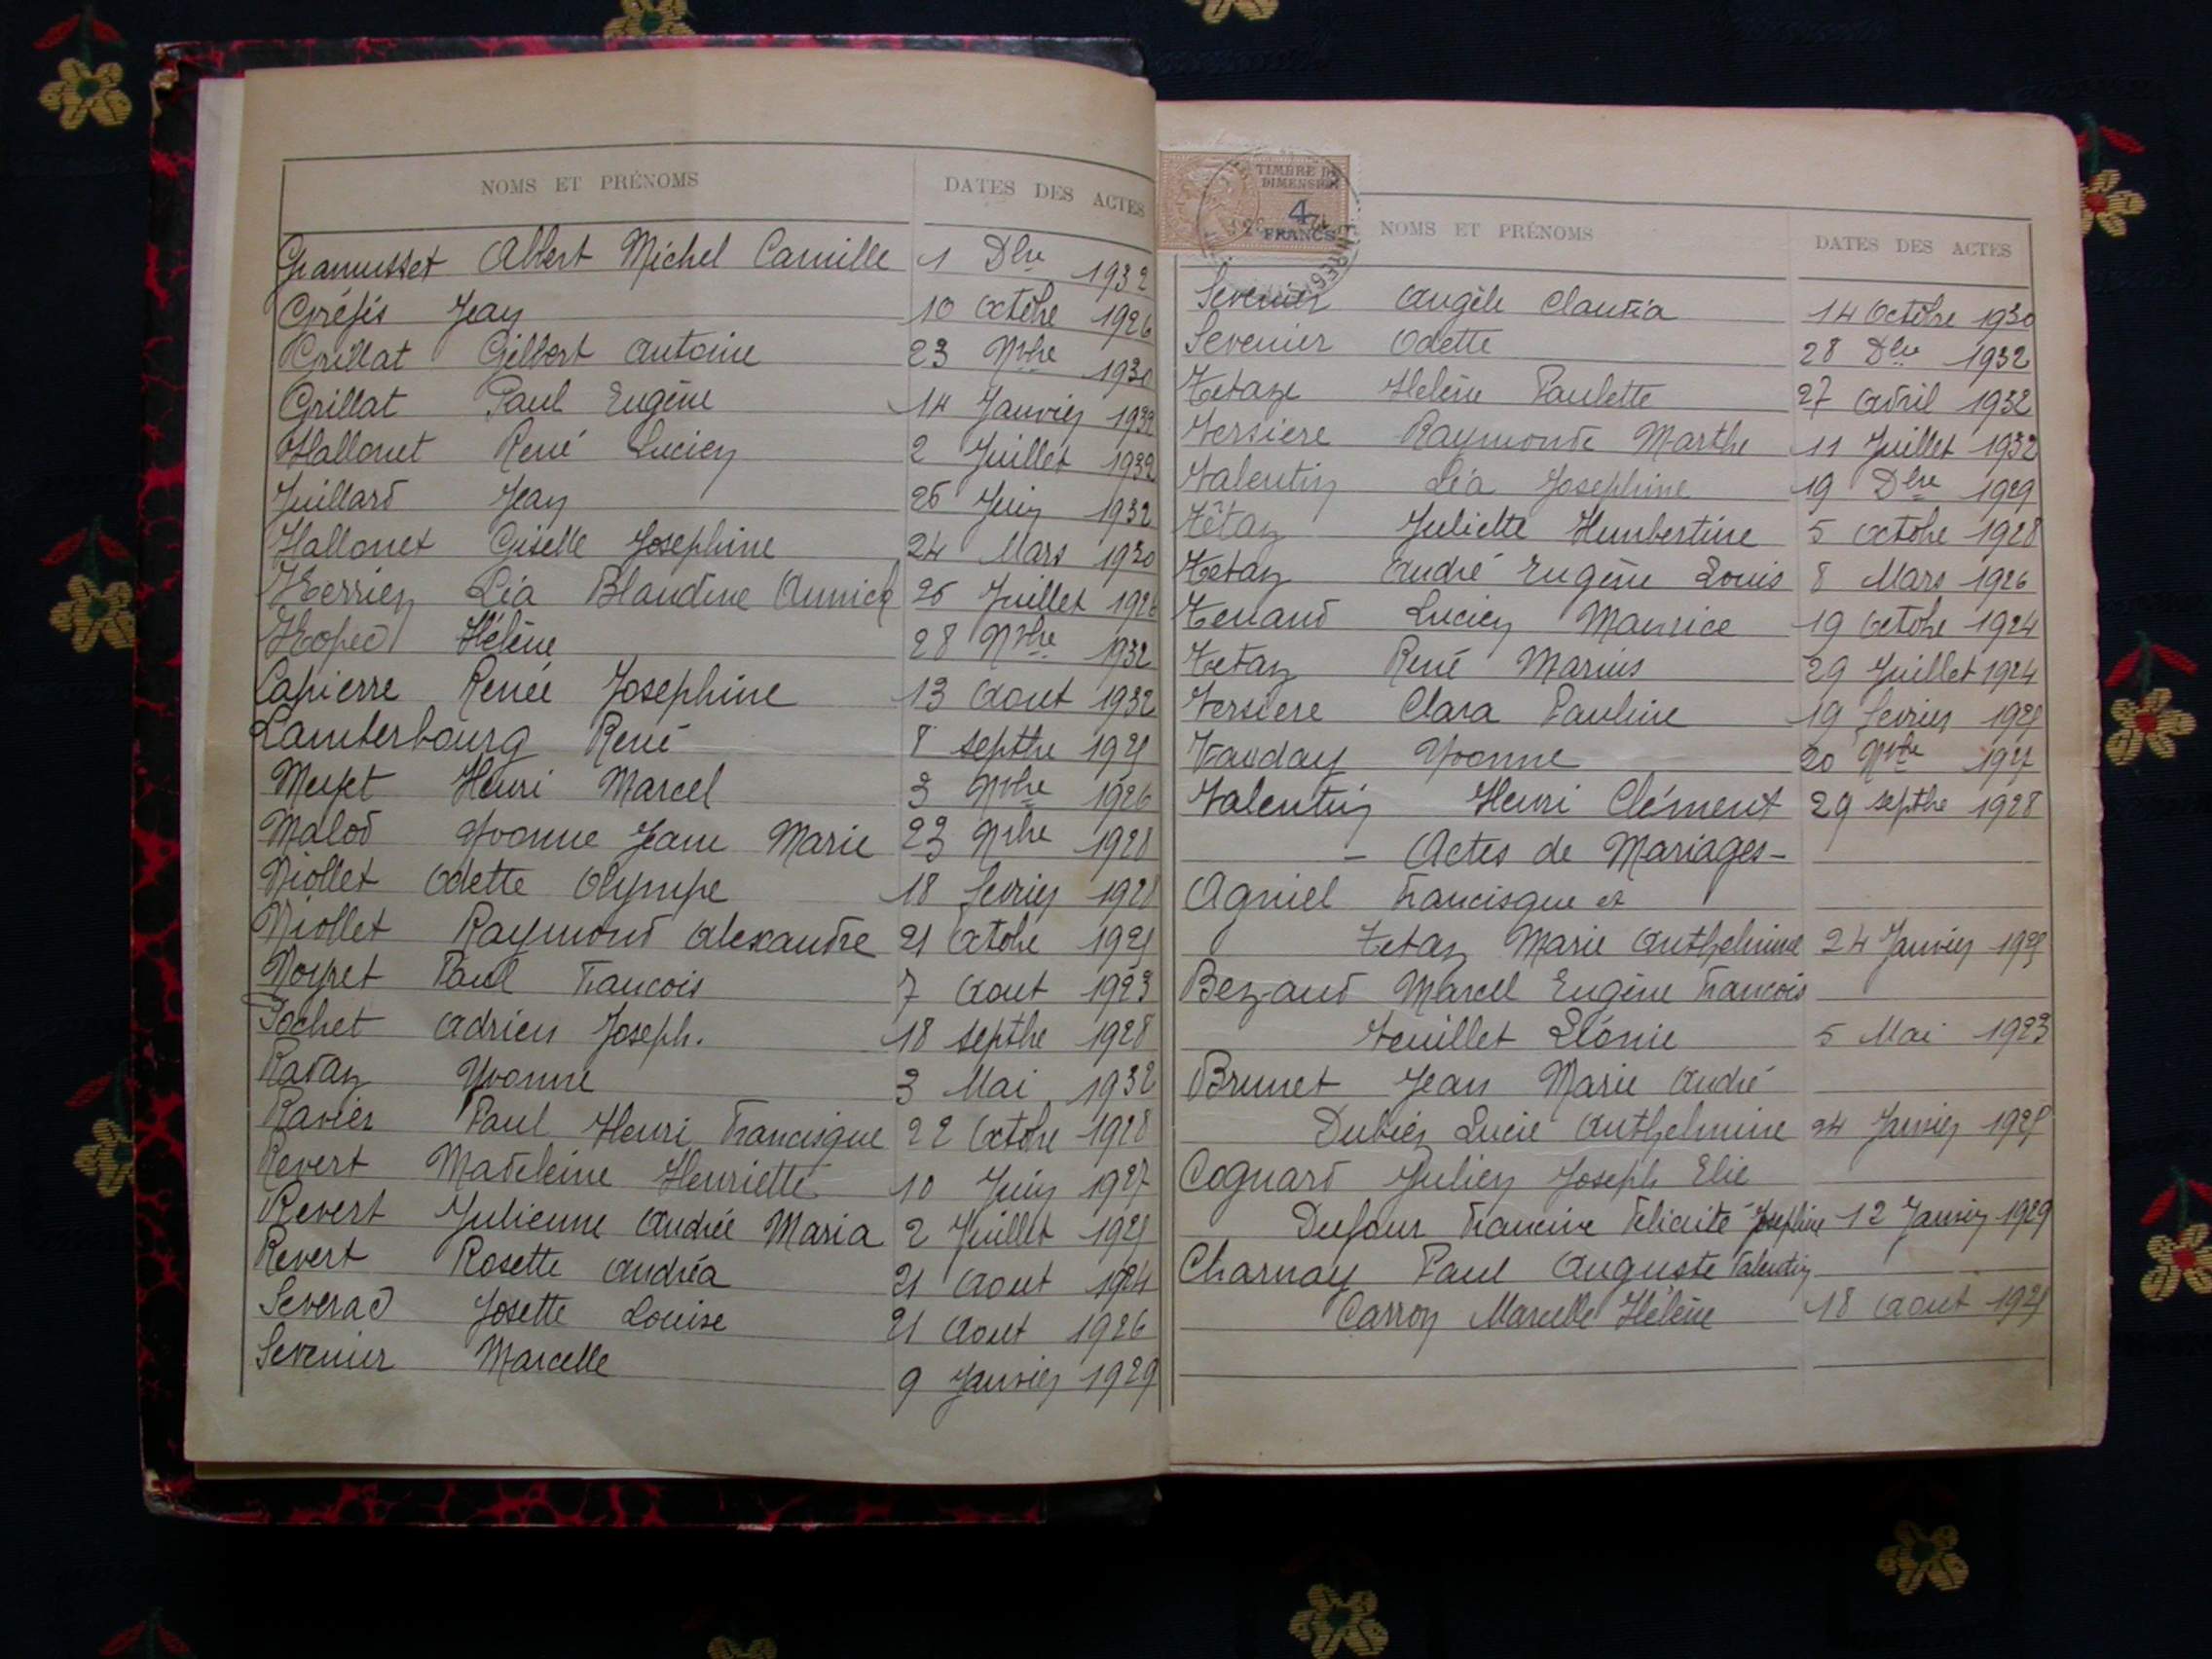 NOMS ET PRÉNOMS DATES DES ACTES
Gramusset Albert Michel Camille 1 Dbre 1932
Gréfis Jean 10 Octobre 1926
Grillat Gilbert Antoine 23 Nbre 1930
Grillat Paul Eugène 14 Janvier 1932
Hallouet René Lucien 2 Juillet 1932
Juillard Jean 26 Juin 1932
Hallouet Giselle Josephine 24 Mars 1930
Kerrien Léa Blandine Annick 26 Juillet 1926
Kopec Hélène 28 Nbre 1932
Lapierre Renée Josephine 13 Aout 1932
Lamterbourg René 8 septbre
Henri Marcel 3 Nbre 1926
Malod Yvonne Jeane Marie 23 Nbre 1928
Niollet Odette Olympe 18 fevrier
Niollet Raymond Alexandre 21 Octobre
Noyret Paul Francois 7 Aout 1923
Pochet Adrien Joseph. 18 septbre 1928
Radaz Yvonne 3 Mai 1932
Ravier Paul Henri Francisque 22 Octobre 1928
Revert Madeleine Henriette 10 Juin 1927
Revert Julienne Andrée Maria 2 Juillet
Revert Rosette Andréa 21 Aout 1924
Severac Josette Louise 21 Aout 1926
Sevenier Marcelle 9 Janvier 1929
TIMBRE DE
DIMENSION
4
FRANCS
NOMS ET PRÉNOMS DATES DES ACTES
Sevenier Angèle Claudia 14 Octobre 1930
Sevenier Odette 28 Dbre 1932
Tetaze Helène Paulette 27 Avril 1932
Versiere Raymonde Marthe 11 Juillet 1932
Valentin Léa Josephine 19 Dbre 1929
Tétaz Juliette Humbertine 5 Octobre 1928
Tetaz André Eugène Louis 8 Mars 1926
Tenand Lucien Maurice 19 Octobre 1924
Tetaz René Marius 29 Juillet 1924
Versiere Clara Pauline 19 fevrier
Yvonne 20 Nbre
Valentin Henri Clément 29 septbre 1928
- Actes de Mariages -
Agniel Francisque et
Tetaz Marie Anthelmine 24 Janvier
Bezaud Marcel Eugène Francois
Veuillet Léonie 5 Mai 1923
Brunet Jean Marie André
Dubien Lucie Anthelmine 24 Janvier
Cognard Julien Joseph Elie
Dufour Francine Félicité Josephine 12 Janvier 1929
Charnay Paul Auguste Valentin
Carron Marcelle Hélène 18 Aout